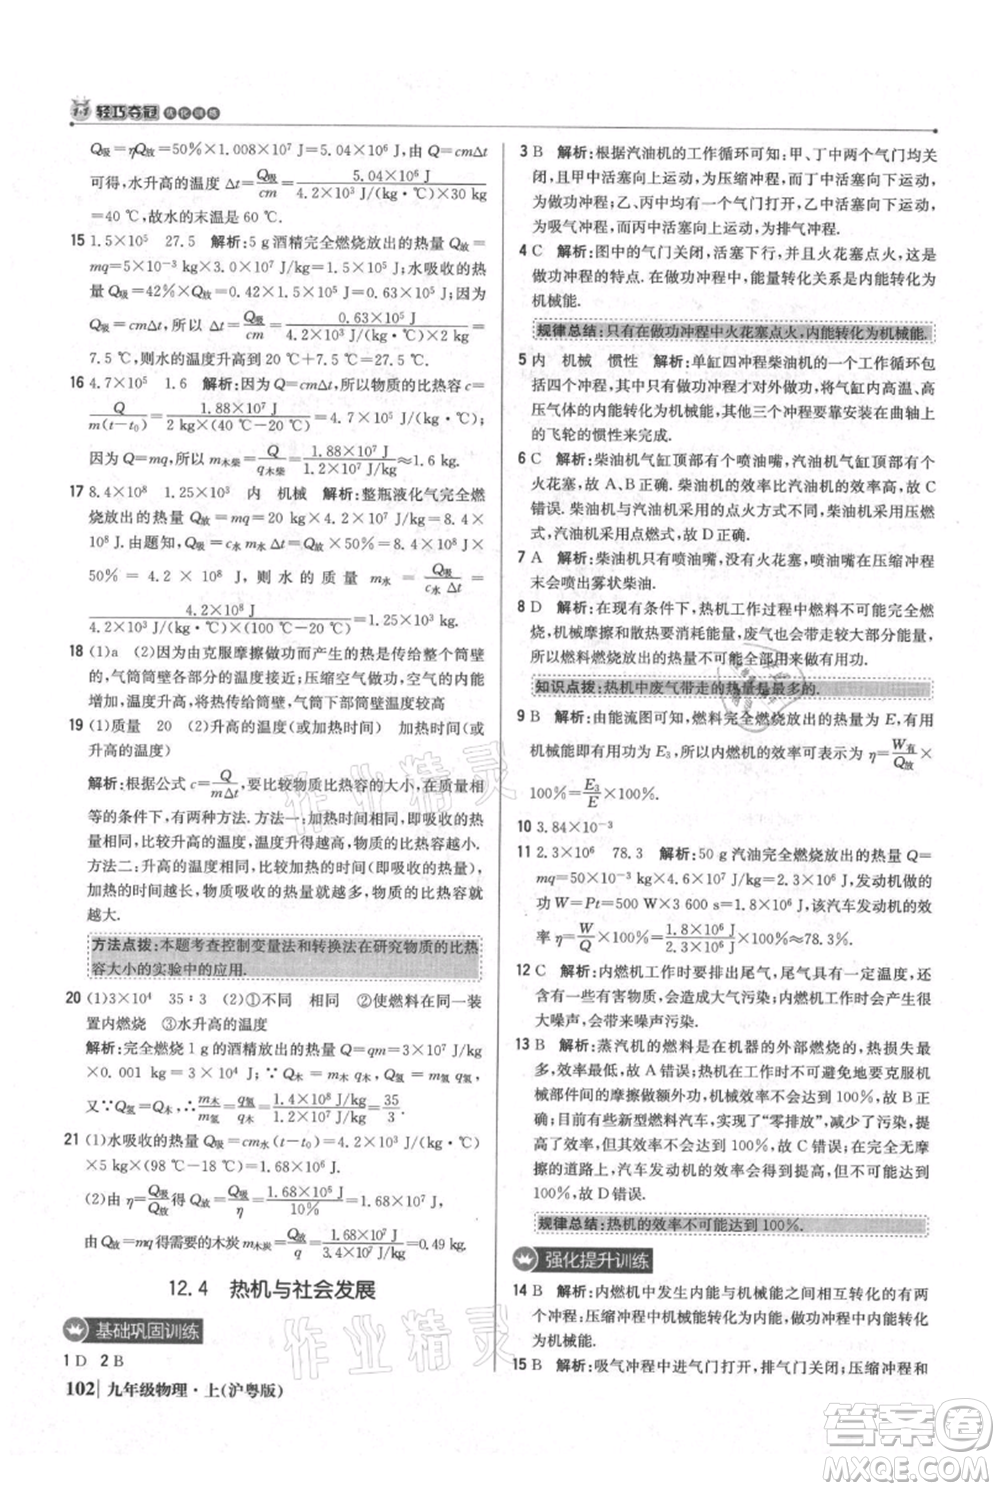 1+1 轻巧夺冠 优化训练
Q吸=ηQ放=50%×1.008×10⁷ J=5.04×10⁶ J,由Q=cmΔt
可得,水升高的温度 Δt=Q吸/cm=5.04×10⁶ J/(4.2×10³ J/(kg·℃)×30 kg)
=40 ℃,故水的末温是 60 ℃.
15 1.5×10⁵ 27.5 解析:5 g酒精完全燃烧放出的热量Q放=
mq=5×10⁻³ kg×3.0×10⁷ J/kg=1.5×10⁵ J;水吸收的热
量Q吸=42%×Q放=0.42×1.5×10⁵ J=0.63×10⁵ J,由Q=
cmΔt,所以 Δt=Q吸/cm=0.63×10⁵ J/(4.2×10³ J/(kg·℃)×2 kg)=
7.5 ℃,则水的温度升高到 20 ℃+7.5 ℃=27.5 ℃.
16 4.7×10⁵ 1.6 解析:因为Q=cmΔt,所以物质的比热容c=
Q/m(t-t₀)=1.88×10⁷ J/(2 kg×(40 ℃-20 ℃))=4.7×10⁵ J/(kg·℃).
因为Q=mq,所以 m木柴=Q/q木柴=1.88×10⁷ J/1.2×10⁷ J/kg≈1.6 kg.
17 8.4×10⁸ 1.25×10³ 内 机械 解析:整瓶液化气完全燃
烧放出的热量Q放=mq=20 kg×4.2×10⁷ J/kg=8.4×
10⁸ J.由题知,Q吸=c水m水Δt=Q放×50%=8.4×10⁸ J×
50%=4.2×10⁸ J,则水的质量 m水=Q吸/c水Δt=
4.2×10⁸ J/(4.2×10³ J/(kg·℃)×(100 ℃-20 ℃))=1.25×10³ kg.
18 (1)a (2)筒内由克服摩擦做功而产生的热是传给气筒筒壁
的,气筒筒壁各部分的温度一样;压缩空气做功,空气的内能
增加,温度升高,传热给筒壁,气筒下部筒壁温度较高
19 (1)质量 20 (2)升高的温度(或加热时间) 加热时间(或
升高的温度)
解析:根据公式c=Q/mΔt,要比较物质比热容的大小,在质量相
等的条件下,有两种方法.方法一:加热相同的时间,比较升高
的温度,升高的温度越高,说明这种物质的比热容越小.
方法二:升高相同的温度,比较加热的时间(即吸收的热量),
加热的时间越长,物质吸收的热量就越多,物质的比热容就
越大.
方法点拨:本题考查控制变量法和转换法在研究物质的比热
容大小的实验中的应用.
20 (1)3×10⁴ 35∶3 (2)①不同 相同 ②使燃料在同一装
置内燃烧 ③水升高的温度
解析:完全燃烧 1 g的酒精放出的热量Q=qm=3×10⁷ J/kg
×0.001 kg=3×10⁴ J;∵Q木=m木q木,Q氢=m氢q氢,
又∵Q木=Q氢,∴m木/m氢=q氢/q木=1.4×10⁸ J/kg/1.2×10⁷ J/kg=35/3.
21 (1)水吸收的热量Q吸=cm水(t-t₀)=4.2×10³ J/(kg·℃)
×5 kg×(98 ℃-18 ℃)=1.68×10⁶ J.
(2)由η=Q吸/Q放得Q放=Q吸/η=1.68×10⁶ J/10%=1.68×10⁷ J,
由Q放=mq得需要的木炭 m木炭=Q放/q=1.68×10⁷ J/3.4×10⁷ J/kg≈0.49 kg.
12.4 热机与社会发展
基础巩固训练
1 D 2 B
102 九年级物理·上(沪粤版)
3 B 解析:根据汽油机的工作循环可知:甲、丁中两个气门均关
闭,且甲中活塞向上运动,为压缩冲程,而丁中活塞向下运动,
为做功冲程;乙、丙中均有一个气门打开,乙中活塞向下运动,
为吸气冲程,而丙中活塞向上运动,为排气冲程.
4 C 解析:图中的气门关闭,活塞下行,且火花塞点火,这是
做功冲程的特点.在做功冲程中,能量转化关系是内能转化为
机械能.
规律总结:只有在做功冲程中火花塞点火,内能转化为机械能.
5 内 机械 惯性 解析:单缸四冲程柴油机的一个工作循环包
括四个冲程,其中只有做功冲程对外做功,将气缸内高温、高
压气体的内能转化为机械能,其他三个冲程要靠安装在曲轴上
的飞轮的惯性来完成.
6 C 解析:柴油机气缸顶部有喷油嘴,汽油机气缸顶部有一个
火花塞,故 A、B正确.柴油机的效率比汽油机的效率高,故C
错误.柴油机与汽油机采用的点火方式不同,柴油机采用压燃
式,汽油机采用点燃式,故D正确.
7 A 解析:柴油机只有喷油嘴,没有火花塞,柴油机在压缩冲程
末会喷出雾状柴油.
8 D 解析:在现有条件下,热机工作过程中燃料不可能完全燃
烧,机械摩擦和散热要消耗能量,废气也会带走较大部分能量,
所以燃料燃烧放出的热量不可能全部用来做有用功.
知识点拨:热机中废气带走的热量是最多的.
9 B 解析:由能流图可知,燃料完全燃烧放出的热量为E,有用
机械能即有用功为E₃,所以,内燃机的效率可表示为 η=W有/Q放×
100%=E₃/E×100%.
10 3.84×10⁻³
11 2.3×10⁶ 78.3 解析:50 g汽油完全燃烧放出的热量Q=
mq=50×10⁻³ kg×4.6×10⁷ J/kg=2.3×10⁶ J,该汽车发动机做
的功W=Pt=500 W×3 600 s=1.8×10⁶ J,所以,该汽车发动机的效
率 η=W/Q=1.8×10⁶ J/2.3×10⁶ J×100%≈78.3%.
12 C 解析:内燃机工作时要排出尾气,尾气中含有一些有害气
体或固体小颗粒,会造成大气污染;内燃机工作时会产生噪
声,会带来噪声污染.
13 B 解析:蒸汽机的燃料在机器的外部燃烧的,热损失最多
多,效率最低,故 A错误;热机工作时不可避免地要克服机
械部件间的摩擦做额外功,热机的效率总小于1,故B正确;
目前有些新型燃料汽车,实现了“零排放”,减少了污染,
提高了效率,但效率不会达到 100%,故C错误;在无克服摩
擦的道路上,汽车发动机的效率会得到提高,但不会达到
100%,故D错误.
规律总结:热机的效率不可能达到 100%.
强化提升训练
14 B 解析:内燃机中发生内能与机械能之间相互转化的有做功
冲程和压缩冲程;压缩冲程中机械能转化为内能,做功冲程中
内能转化为机械能.
15 B 解析:吸气冲程中,燃气混合物进入气缸;压缩冲程和
作业精灵
作业精灵
答案圈
MXQE.COM